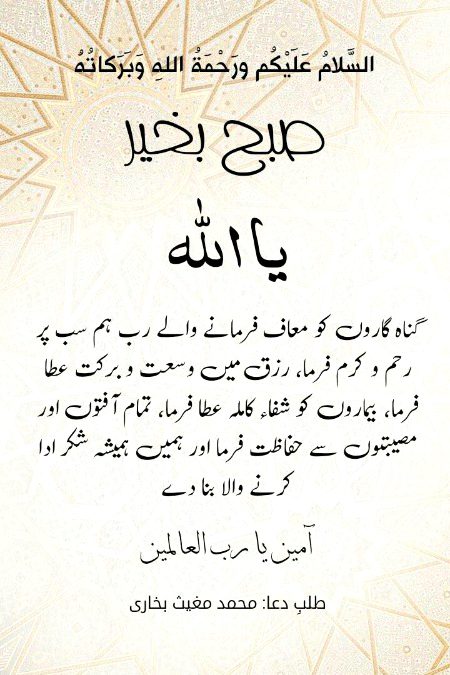 السَّلَامُ عَلَيْكُم ورَحْمَةُ اللهِ وَبَرَكاتُهُ
صبح بخیر
یا اللہ
گناہ گاروں کو معاف فرمانے والے رب ہم سب پر
رحم و کرم فرما، رزق میں وسعت و برکت عطا
فرما، بیماروں کو شفاء کاملہ عطا فرما، تمام آفتوں اور
مصیبتوں سے حفاظت فرما اور ہمیں ہمیشہ شکر ادا
کرنے والا بنا دے
آمین یا رب العالمین
طلبِ دعا: محمد مغیث بخاری